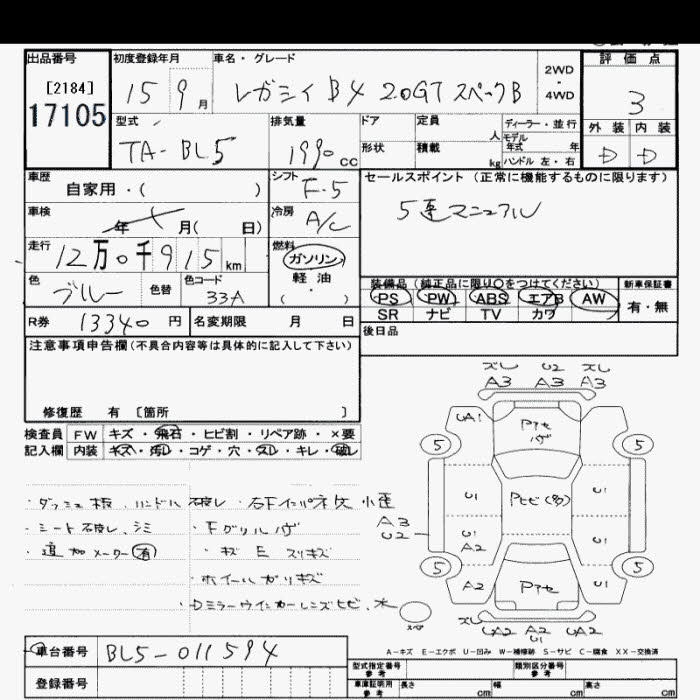 出品番号
[2184]
17105
初度登録年月
15 9月
車名・グレード
レガシィ B4 20GT スペックB
2WD
・
4WD
評価点
3
型式
TA-BL5
排気量
1990cc
ドア
定員
人
ディーラー・並行
モデル
年式 年
形状
積載
kg
ハンドル 左・右
外装 内装
D D
車歴
自家用・( )
シフト
F.5
セールスポイント (正常に機能するものに限ります)
5速マニュアル
車検
年 月( 日)
冷房
A/C
走行
12万0千915km
燃料
ガソリン
軽油
(・)
色
ブルー
色替
色コード
33A
装備品 (純正品に限り○をつけてください)
PS PW ABS エアB AW
SR ナビ TV カワ
新車保証書
有・無
R券 13340円
名変期限 月 日
後日品
注意事項申告欄(不具合内容等は具体的に記入して下さい)
修復歴 有 [箇所 ]
検査員 FW キズ・飛石・ヒビ割・リペア跡・×要
記入欄 内装 キズ・汚レ・コゲ・穴・スレ・キレ・破レ
・ダッシュ板、ハンドル破レ・右Fインパネ欠 小歪
・シート破レ、シミ
・Fグリルハゲ
・追加メーター(有)
・キズ E スリキズ
・ホイールガリキズ
・Dミラーウインカーレンズヒビ、水
スレ U2 スレ
A3 A3 A3
UA1
Pアセ
ハゲ
5 5
U1
Pヒビ(多)
U1
A3
U2
U1
A2
U1
5 5
A2
Pアセ
U1
スペア
スレ
UA2 A2 UA2
U1
A-キズ E-エクボ U-凹み W-補修跡 S-サビ C-腐食 XX-交換済
車台番号 BL5-011594
登録番号
型式指定番号
参考
類別区分番号
参考
車庫証明用
参考
長さ cm
幅 cm
高さ cm